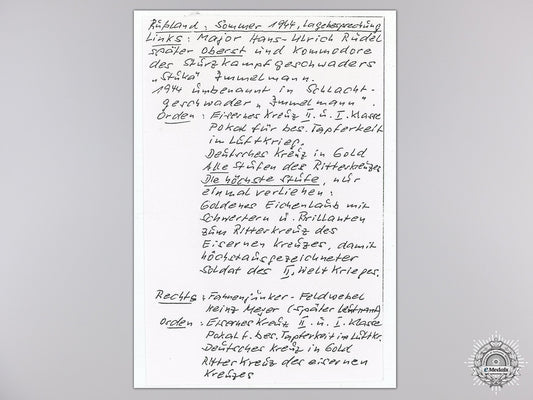 Rußland: Sommer 1944, Lagebesprechung
Links: Major Hans-Ulrich Rudel
später Oberst und Kommodore
des Sturzkampfgeschwaders
„Stuka" Immelmann.
1944 umbenannt in Schlacht-
geschwader „Immelmann".
Orden: Eisernes Kreuz II. u. I. Klasse
Pokal für bes. Tapferkeit
im Luftkrieg.
Deutsches Kreuz in Gold
Alle Stufen des Ritterkreuzes
Die höchste Stufe, nur
einmal verliehen:
Goldenes Eichenlaub mit
Schwertern u. Brillanten
zum Ritterkreuz des
Eisernen Kreuzes, damit
höchstausgezeichneter
Soldat des II. Welt Krieges.
Rechts: Fahnenjunker-Feldwebel
Heinz Meyer (später Leutnant)
Orden: Eisernes Kreuz II. u. I. Klasse
Pokal f. bes. Tapferkeit im Luftkr.
Deutsches Kreuz in Gold
Ritter Kreuz des eisernen
Kreuzes
eMedals